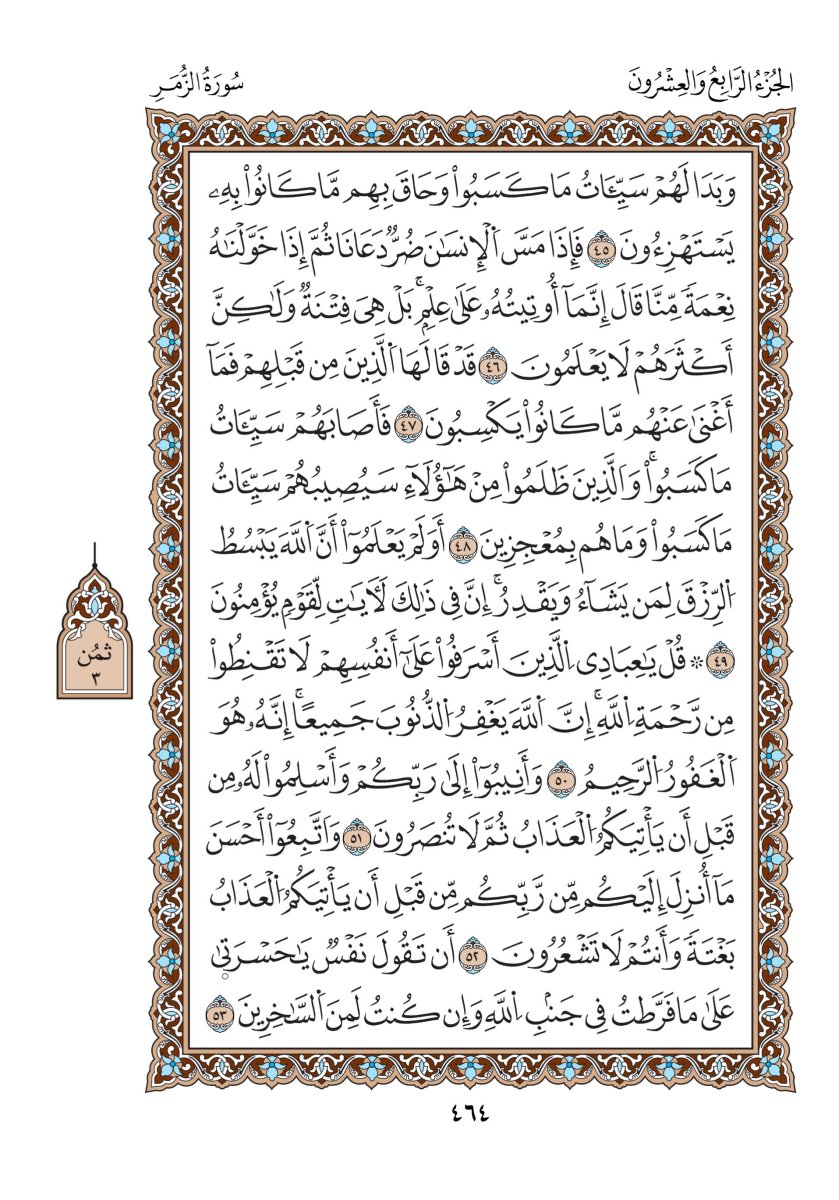 الجُزْءُ الرَّابِعُ وَالعِشْرُونَ
سُورَةُ الزُّمَرِ
وَبَدَا لَهُمْ سَيِّـَٔاتُ مَا كَسَبُواْ وَحَاقَ بِهِم مَّا كَانُواْ بِهِۦ
يَسْتَهْزِءُونَ ٤٥ فَإِذَا مَسَّ اَ۬لْإِنسَٰنَ ضُرٌّ دَعَانَا ثُمَّ إِذَا خَوَّلْنَٰهُ
نِعْمَةً مِّنَّا قَالَ إِنَّمَآ أُوتِيتُهُۥ عَلَىٰ عِلْمِۢۚ بَلْ هِيَ فِتْنَةٌ وَلَٰكِنَّ
أَكْثَرَهُمْ لَا يَعْلَمُونَ ٤٦ قَدْ قَالَهَا اَ۬لَّذِينَ مِن قَبْلِهِمْ فَمَآ
أَغْنَىٰ عَنْهُم مَّا كَانُواْ يَكْسِبُونَ ٤٧ فَأَصَابَهُمْ سَيِّـَٔاتُ
مَا كَسَبُواْۚ وَالَّذِينَ ظَلَمُواْ مِنْ هَٰٓؤُلَآءِ سَيُصِيبُهُمْ سَيِّـَٔاتُ
مَا كَسَبُواْ وَمَا هُم بِمُعْجِزِينَ ٤٨ أَوَلَمْ يَعْلَمُوٓاْ أَنَّ اَ۬للَّهَ يَبْسُطُ
اُ۬لرِّزْقَ لِمَن يَشَآءُ وَيَقْدِرُۚ إِنَّ فِي ذَٰلِكَ لَأٓيَٰتٍ لِّقَوْمٍ يُؤْمِنُونَ
٤٩ ۞ قُلْ يَٰعِبَادِي اِ۬لَّذِينَ أَسْرَفُواْ عَلَىٰٓ أَنفُسِهِمْ لَا تَقْنِطُواْ
مِن رَّحْمَةِ اِ۬للَّهِۚ إِنَّ اَ۬للَّهَ يَغْفِرُ اُ۬لذُّنُوبَ جَمِيعًاۚ إِنَّهُۥ هُوَ
اَ۬لْغَفُورُ اُ۬لرَّحِيمُ ٥٠ وَأَنِيبُوٓاْ إِلَىٰ رَبِّكُمْ وَأَسْلِمُواْ لَهُۥ مِن
قَبْلِ أَن يَأْتِيَكُمُ اُ۬لْعَذَابُ ثُمَّ لَا تُنصَرُونَ ٥١ وَاتَّبِعُوٓاْ أَحْسَنَ
مَآ أُنزِلَ إِلَيْكُم مِّن رَّبِّكُم مِّن قَبْلِ أَن يَأْتِيَكُمُ اُ۬لْعَذَابُ
بَغْتَةً وَأَنتُمْ لَا تَشْعُرُونَ ٥٢ أَن تَقُولَ نَفْسٌ يَٰحَسْرَتٜىٰ
عَلَىٰ مَا فَرَّطتُ فِي جَنۢبِ اِ۬للَّهِ وَإِن كُنتُ لَمِنَ اَ۬لسَّٰخِرِينَ ٥٣
ثمُن
٣
٤٦٤